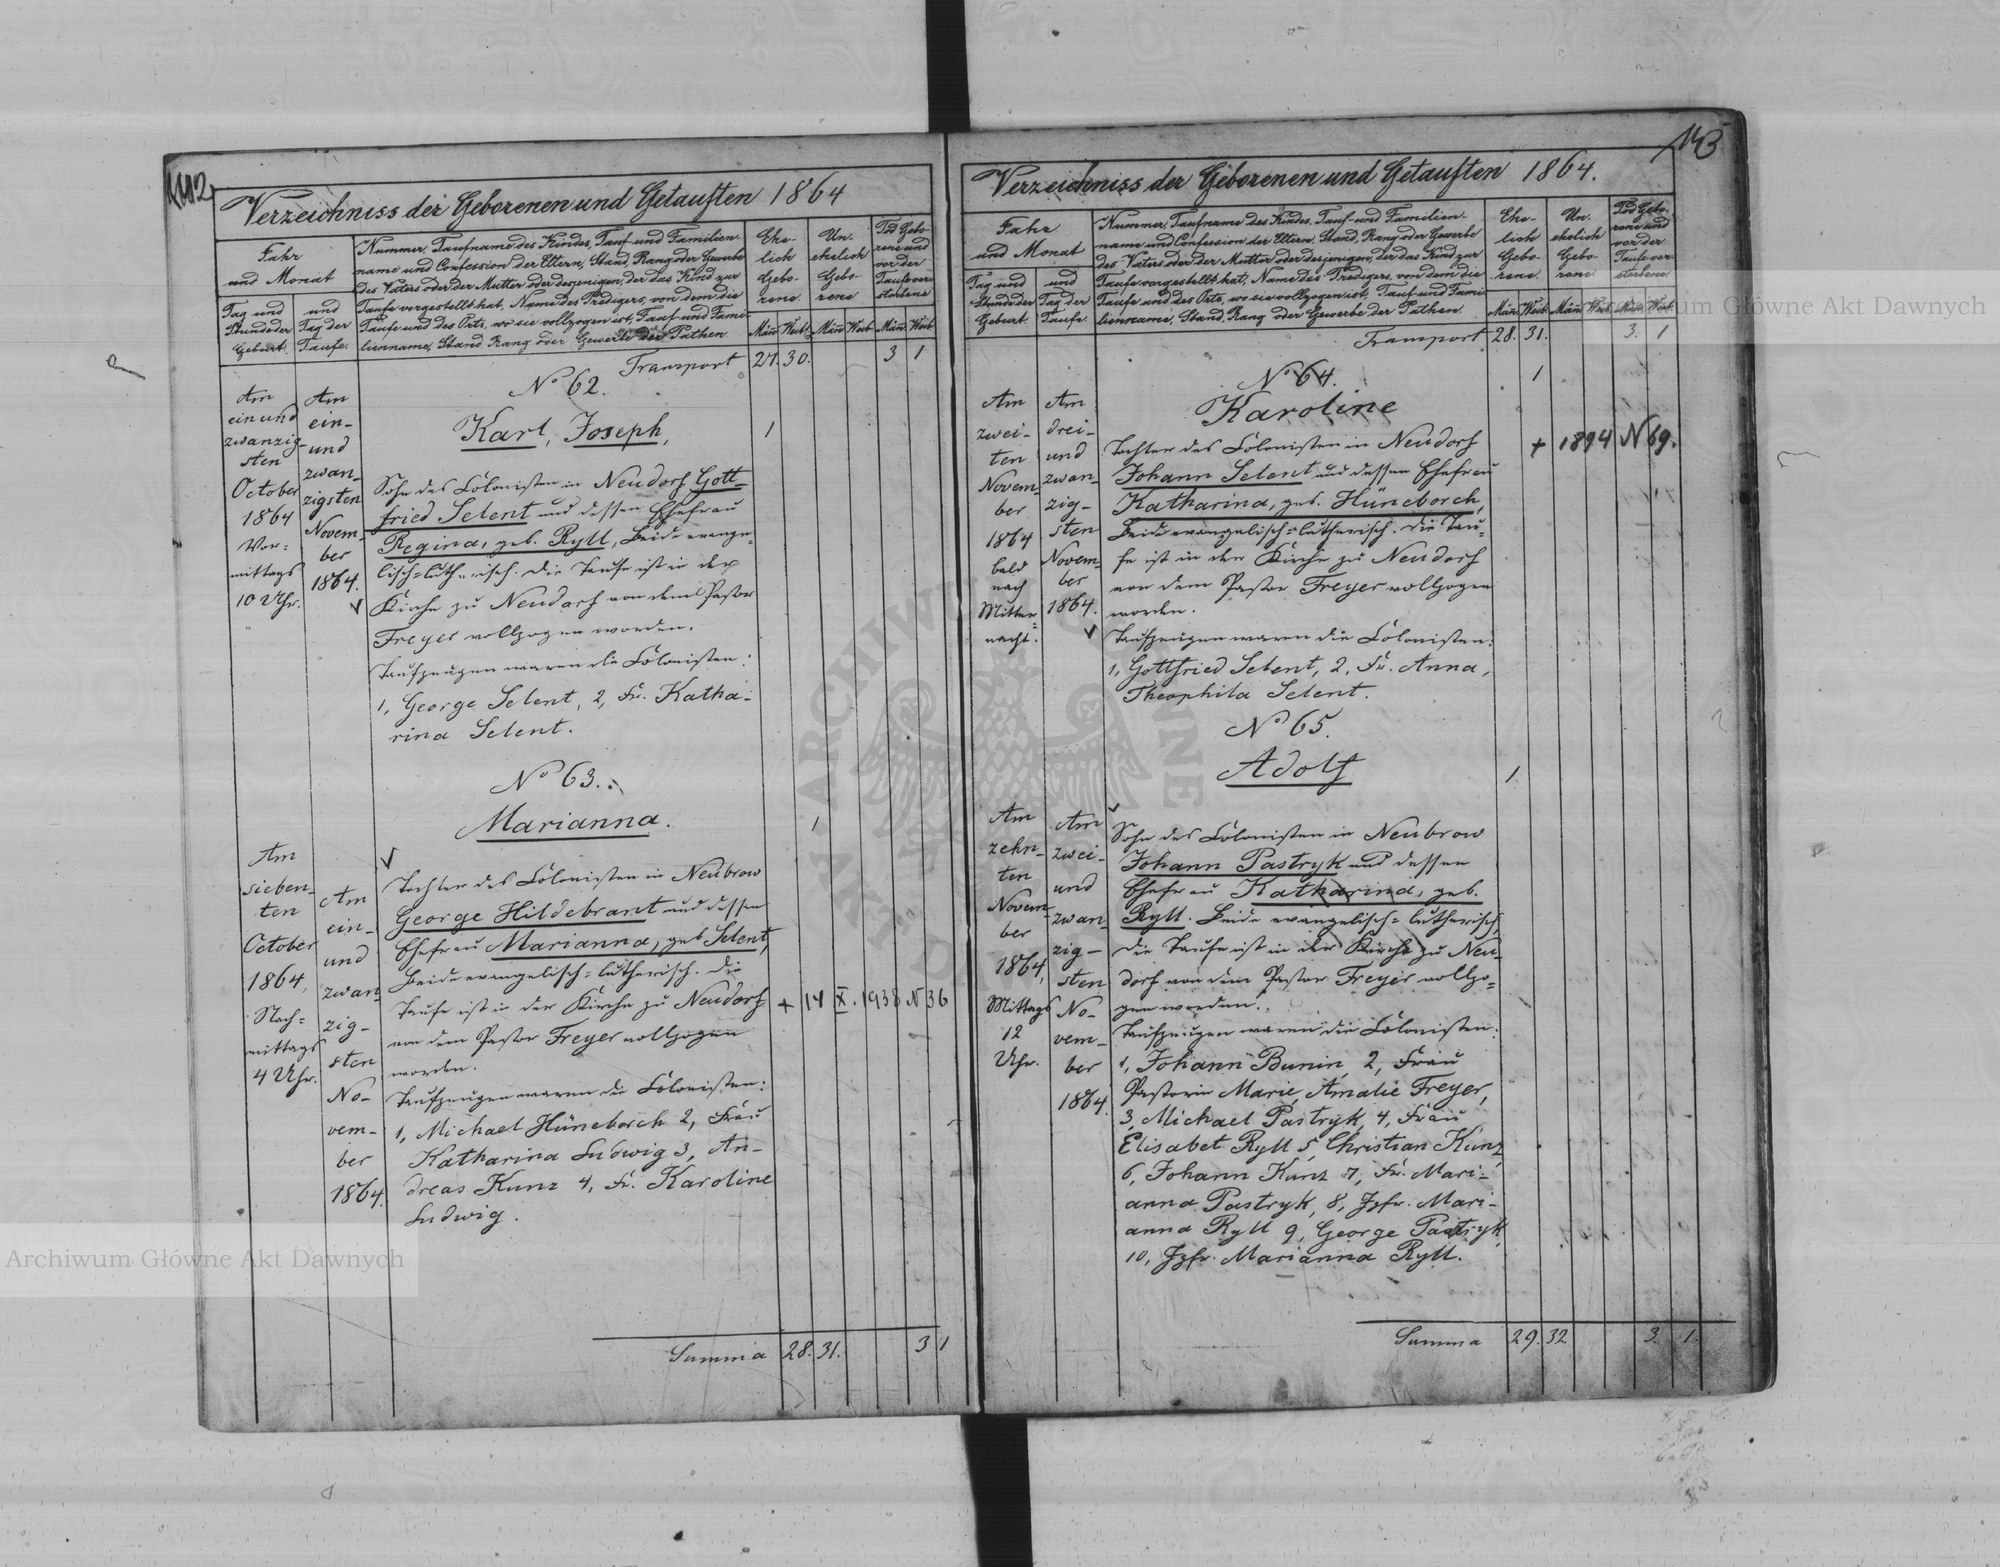 142
Verzeichniss der Geborenen und Getauften 1864
Jahr
und Monat
Tag und
Stunde der
Geburt.
und
Tag der
Taufe.
Nummer, Taufname des Kindes, Tauf- und Familien-
name und Confession der Eltern, Stand, Rang oder Gewerbe
des Vaters oder der Mutter oder desjenigen, der das Kind zur
Taufe vorgestellt hat, Name des Predigers, von dem die
Taufe und des Orts, wo sie vollzogen ist, Tauf- und Fami-
lienname, Stand, Rang oder Gewerbe der Pathen.
Ehe-
lich
Gebo-
rene.
Un-
ehelich
Gebo-
rene
Tod Gebo-
rene und
vor der
Taufe ver-
storbene
Män. Weib. Män. Weib. Män. Weib.
Transport 27. 30. 3 1
No 62.
Karl, Joseph, 1
Am
ein und
zwanzig-
sten
October
1864
Vor-
mittags
10 Uhr.
Am
ein-
und
zwan-
zigsten
Novem-
ber
1864.
Sohn des Colonisten in Neudorf Gott-
fried Selent und dessen Ehefrau
Regina, geb. Ryll, Beide evange-
lisch-lutherisch. Die Taufe ist in der
Kirche zu Neudorf von dem Pastor
Freyer vollzogen worden.
Taufzeugen waren die Colonisten:
1, George Selent, 2, Fr. Katha-
rina Selent.
No 63.
Marianna. 1
Am
sieben-
ten
October
1864,
Nach-
mittags
4 Uhr.
Am
ein-
und
zwan-
zig-
sten
No-
vem-
ber
1864.
Tochter des Colonisten in Neubrow
George Hildebrant und dessen
Ehefrau Marianna, geb. Selent,
Beide evangelisch-lutherisch. Die
Taufe ist in der Kirche zu Neudorf + 14 X. 1938 N 36
von dem Pastor Freyer vollzogen
worden.
Taufzeugen waren die Colonisten:
1, Michael Hüneborch 2, Frau
Katharina Ludwig 3, An-
dreas Kunz 4, Fr. Karoline
Ludwig.
Summa 28. 31. 3 1
143
Verzeichniss der Geborenen und Getauften 1864.
Jahr
und Monat
Tag und
Stunde der
Geburt.
und
Tag der
Taufe.
Nummer, Taufname des Kindes, Tauf- und Familien-
name und Confession der Eltern, Stand, Rang oder Gewerbe
des Vaters oder der Mutter oder desjenigen, der das Kind zur
Taufe vorgestellt hat, Name des Predigers, von dem die
Taufe und des Orts, wo sie vollzogen ist, Tauf- und Fami-
lienname, Stand, Rang oder Gewerbe der Pathen.
Ehe-
lich
Gebo-
rene.
Un-
ehelich
Gebo-
rene
Tod Gebo-
rene und
vor der
Taufe ver-
storbene
Män. Weib. Män. Weib. Män. Weib.
Transport 28. 31. 3. 1
No 64. 1
Karoline
Am
zwei-
ten
Novem-
ber
1864
bald
nach
Mitter-
nacht.
Am
drei-
und
zwan-
zig-
sten
Novem-
ber
1864.
Tochter des Colonisten in Neudorf + 1894 N 69.
Johann Selent und dessen Ehefrau
Katharina, geb. Hüneborch,
Beide evangelisch-lutherisch. Die Tau-
fe ist in der Kirche zu Neudorf
von dem Pastor Freyer vollzogen
worden.
Taufzeugen waren die Colonisten:
1, Gottfried Selent, 2, Fr. Anna,
Theophila Selent.
No 65.
Adolf 1
Am
zehn-
ten
Novem-
ber
1864,
Mittags
12
Uhr.
Am
zwei-
und
zwan-
zig-
sten
No-
vem-
ber
1864.
Sohn des Colonisten in Neubrow
Johann Pastryk und dessen
Ehefrau Katharina, geb.
Ryll. Beide evangelisch-lutherisch,
Die Taufe ist in der Kirche zu Neu-
dorf von dem Pastor Freyer vollzo-
gen worden.
Taufzeugen waren die Colonisten:
1, Johann Bunin, 2, Frau
Pastorin Marie, Amalie Freyer,
3, Michael Pastryk, 4, Frau
Elisabet Ryll 5, Christian Kunz,
6, Johann Kunz 7, Fr. Mari-
anna Pastryk, 8, Jgfr. Mari-
anna Ryll 9, George Pastryk
10, Jgfr. Marianna Ryll.
Summa 29. 32. 3. 1.
Archiwum Główne Akt Dawnych
Archiwum Główne Akt Dawnych